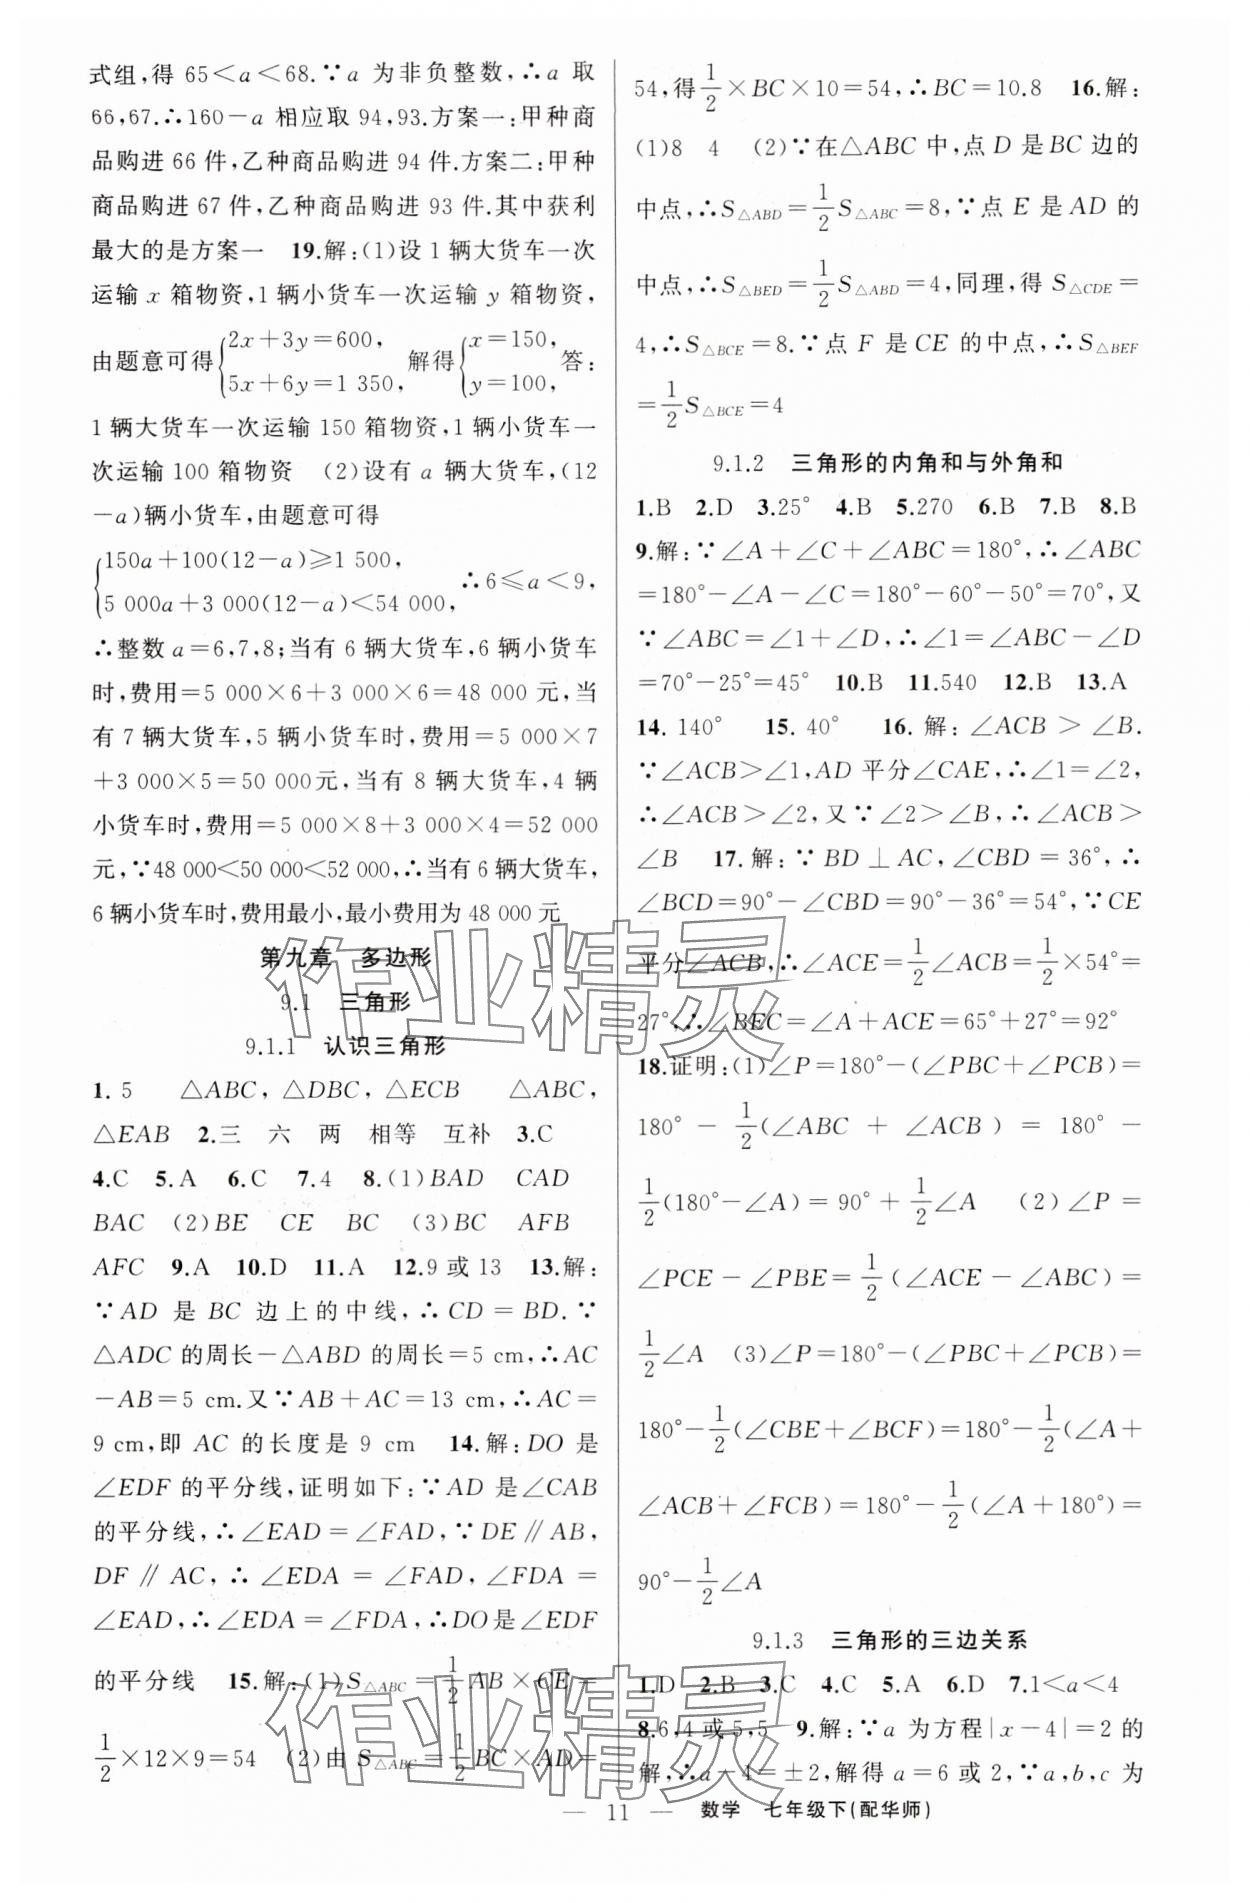 式组,得 65＜a＜68.∵a 为非负整数,∴a 取
66,67.∴160－a 相应取 94,93.方案一:甲种商
品购进 66 件,乙种商品购进 94 件.方案二:甲种
商品购进 67 件,乙种商品购进 93 件.其中获利
最大的是方案一 19.解:(1)设 1 辆大货车一次
运输 x 箱物资,1 辆小货车一次运输 y 箱物资,
由题意可得{2x＋3y＝600, 5x＋6y＝1 350, 解得{x＝150, y＝100, 答:
1 辆大货车一次运输 150 箱物资,1 辆小货车一
次运输 100 箱物资 (2)设有 a 辆大货车,(12
－a)辆小货车,由题意可得
{150a＋100(12－a)≥1 500, 5 000a＋3 000(12－a)＜54 000, ∴6≤a＜9,
∴整数 a＝6,7,8;当有 6 辆大货车,6 辆小货车
时,费用＝5 000×6＋3 000×6＝48 000 元,当
有 7 辆大货车,5 辆小货车时,费用＝5 000×7
＋3 000×5＝50 000元,当有 8 辆大货车,4 辆
小货车时,费用＝5 000×8＋3 000×4＝52 000
元,∵48 000＜50 000＜52 000,∴当有 6 辆大货车,
6 辆小货车时,费用最小,最小费用为 48 000 元
第九章 多边形
9.1 三角形
9.1.1 认识三角形
1. 5 △ABC, △DBC, △ECB △ABC,
△EAB 2.三 六 两 相等 互补 3.C
4.C 5.A 6.C 7.4 8.(1)BAD CAD
BAC (2)BE CE BC (3)BC AFB
AFC 9.A 10.D 11.A 12.9 或 13 13.解:
∵AD 是 BC 边上的中线,∴CD＝BD.∵
△ADC 的周长－△ABD 的周长＝5 cm,∴AC
－AB＝5 cm.又∵AB＋AC＝13 cm,∴AC＝
9 cm,即 AC 的长度是 9 cm 14.解:DO 是
∠EDF 的平分线,证明如下:∵AD 是∠CAB
的平分线,∴∠EAD＝∠FAD,∵DE∥AB,
DF∥AC,∴∠EDA＝∠FAD,∠FDA＝
∠EAD,∴∠EDA＝∠FDA,∴DO是∠EDF
的平分线 15.解:(1)S△ABC＝1/2 AB×CE＝
1/2×12×9＝54 (2)由 S△ABC＝1/2 BC×AD＝
54,得1/2×BC×10＝54,∴BC＝10.8 16.解:
(1)8 4 (2)∵在△ABC 中,点 D 是 BC 边的
中点,∴S△ABD＝1/2 S△ABC＝8,∵点 E 是 AD 的
中点,∴S△BED＝1/2 S△ABD＝4,同理,得 S△CDE＝
4,∴S△BCE＝8.∵点 F 是 CE 的中点,∴S△BEF
＝1/2 S△BCE＝4
9.1.2 三角形的内角和与外角和
1.B 2.D 3.25° 4.B 5.270 6.B 7.B 8.B
9.解:∵∠A＋∠C＋∠ABC＝180°,∴∠ABC
＝180°－∠A－∠C＝180°－60°－50°＝70°,又
∵∠ABC＝∠1＋∠D,∴∠1＝∠ABC－∠D
＝70°－25°＝45° 10.B 11.540 12.B 13.A
14. 140° 15. 40° 16. 解:∠ACB＞∠B.
∵∠ACB＞∠1,AD 平分∠CAE,∴∠1＝∠2,
∴∠ACB＞∠2,又∵∠2＞∠B,∴∠ACB＞
∠B 17. 解:∵BD⊥AC,∠CBD＝36°,∴
∠BCD＝90°－∠CBD＝90°－36°＝54°,∵CE
平分∠ACB,∴∠ACE＝1/2∠ACB＝1/2×54°＝
27°,∴∠BEC＝∠A＋ACE＝65°＋27°＝92°
18.证明:(1)∠P＝180°－(∠PBC＋∠PCB)＝
180°－1/2(∠ABC＋∠ACB)＝180°－
1/2(180°－∠A)＝90°＋1/2∠A (2)∠P＝
∠PCE－∠PBE＝1/2(∠ACE－∠ABC)＝
1/2∠A (3)∠P＝180°－(∠PBC＋∠PCB)＝
180°－1/2(∠CBE＋∠BCF)＝180°－1/2(∠A＋
∠ACB＋∠FCB)＝180°－1/2(∠A＋180°)＝
90°－1/2∠A
9.1.3 三角形的三边关系
1.D 2.B 3.C 4.C 5.A 6.D 7.1＜a＜4
8.6,4 或 5,5 9.解:∵a 为方程|x－4|＝2 的
解,∴a－4＝±2,解得 a＝6 或 2,∵a,b,c 为
— 11 — 数学 七年级下(配华师)
作业精灵
作业精灵